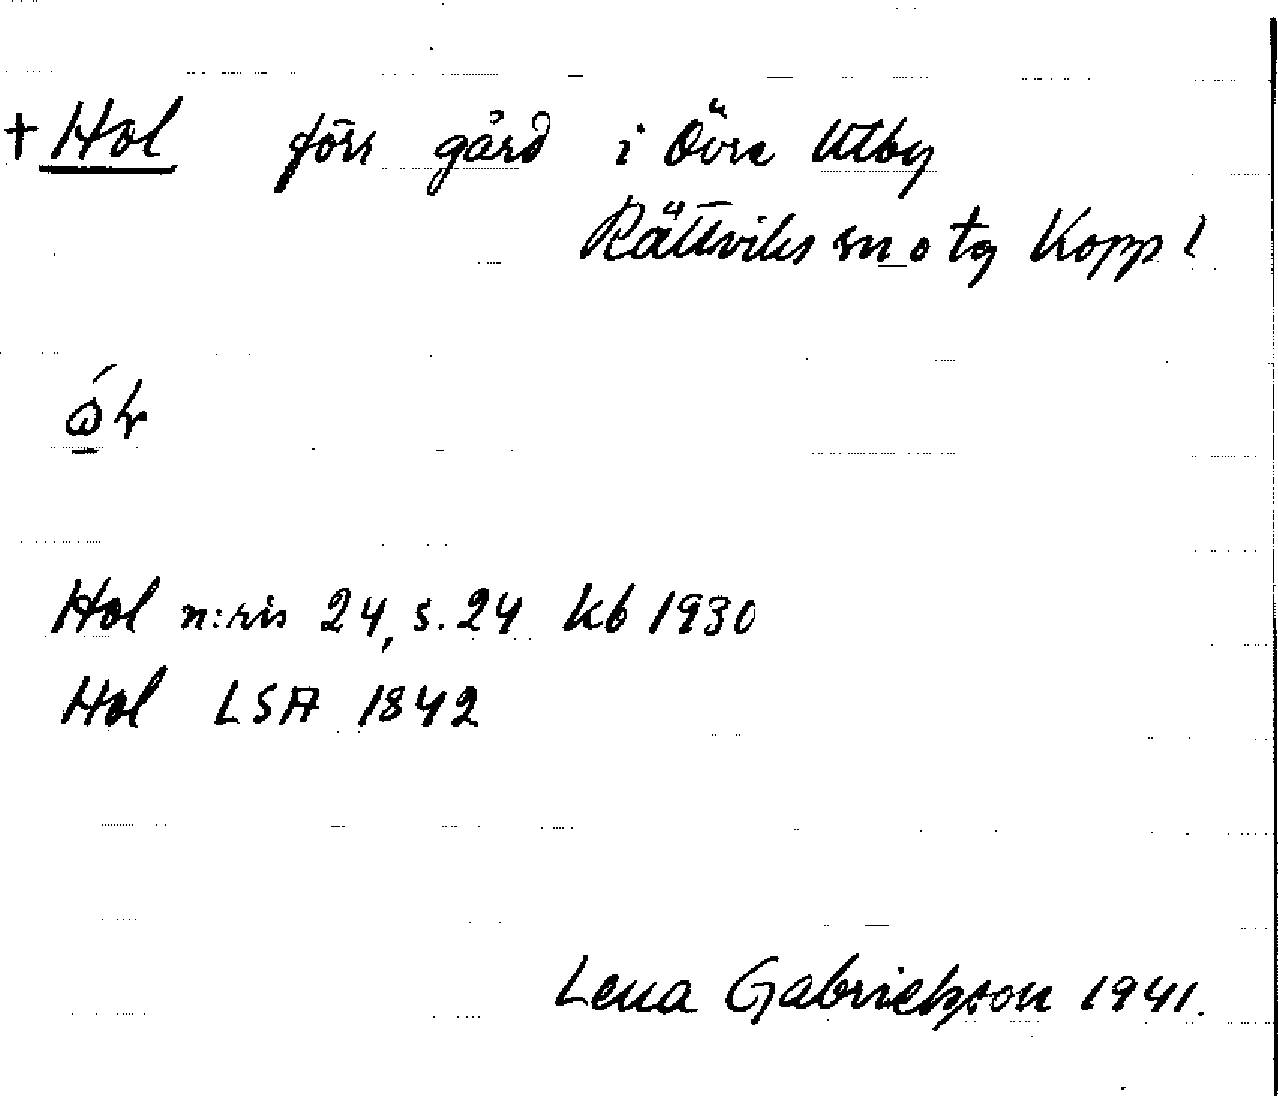 † Hol förr gård i Övre Utby
Rättviks sn o tg Kopp l
Hol n:ris 24, s. 24 kb 1930
Hol LSA 1842
Lena Gabrielsson 1941.